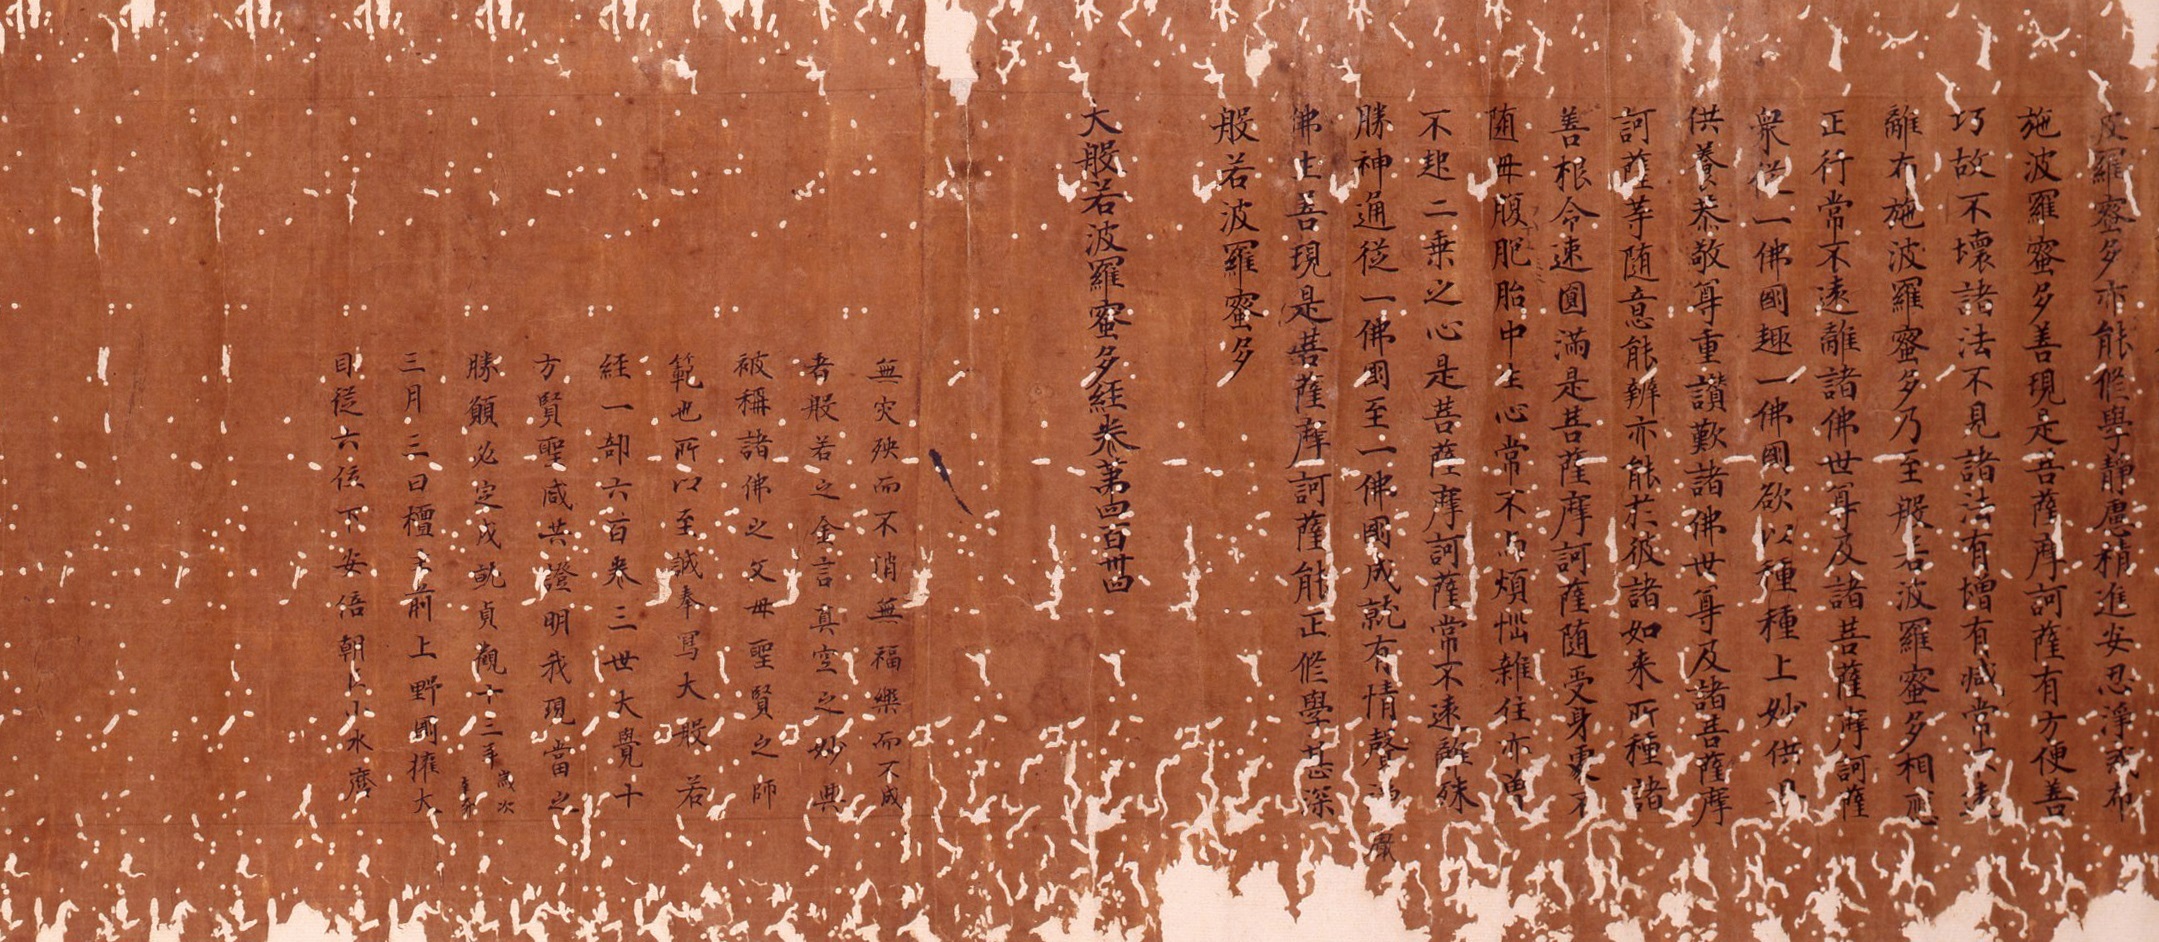 皮羅蜜多亦能修學靜慮精進安忍淨戒布
施波羅蜜多善現是菩薩摩訶薩有方便善
巧故不壞諸法不見諸法有增有減常不遠
離布施波羅蜜多乃至般若波羅蜜多相應
正行常不遠離諸佛世尊及諸菩薩摩訶薩
衆從一佛國趣一佛國欲以種種上妙供具
供養恭敬尊重讚歎諸佛世尊及諸菩薩摩
訶薩等隨意能辦亦能於彼諸如来所種諸
善根令速圓滿是菩薩摩訶薩随受身處不
随母腹肥胎中生心常不与煩惱雜住亦曾
不起二乗之心是菩薩摩訶薩常不遠離殊
勝神通從一佛國至一佛國成就有情嚴淨
佛生善現是菩薩摩訶薩能正修學甚深
般若波羅蜜多
大般若波羅蜜多経巻第四百卌四
無灾殃而不消無福樂而不成
者般若之金言真空之妙典
被稱諸佛之父母聖賢之師
範也所以至誠奉寫大般若
経一部六百巻三世大覺十
方賢聖咸共證明我現當之
勝願必定成就貞觀十三年歳次辛卯
三月三日檀主前上野國権大
目従六位下安倍朝臣小水麿